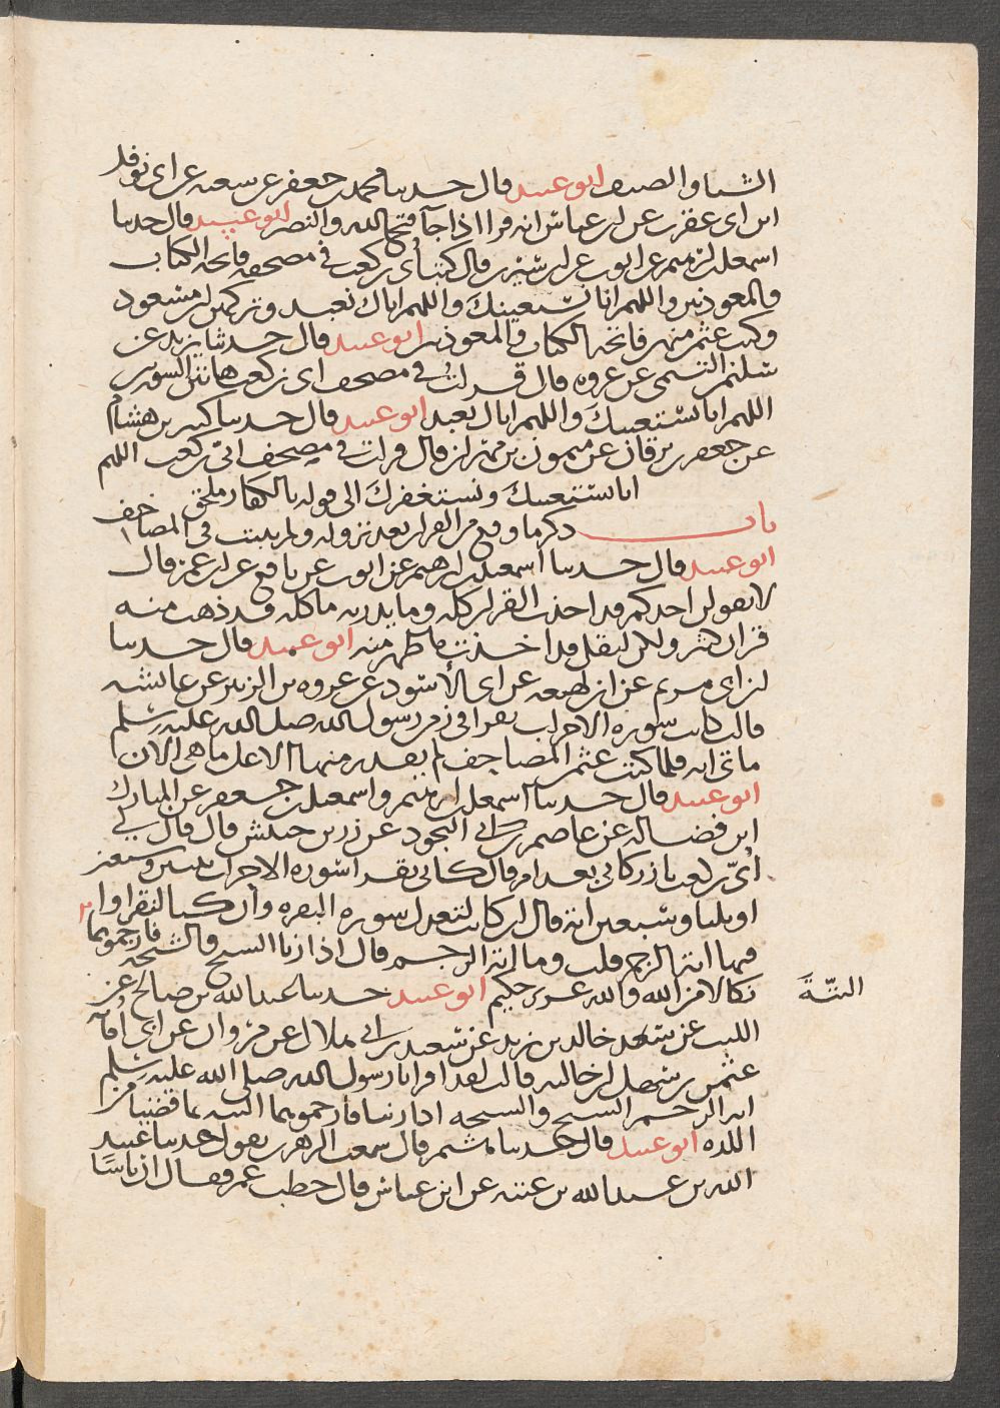 الشتا والصيف ابو عبيد قال حدثنا محمد بن جعفر عن شعبه عن ابي نوفل
ابن ابي عقرب عن ابن عباس انه قرا اذا جآ فتح الله والنصر ابو عبيد قال حدثنا
اسمعيل بن ابرهيم عن ايوب عن ابن سيرين قال كتب أبي بن كعب في مصحفه فاتحه الكتاب
والمعوذتين واللهم انا نستعينك واللهم اياك نعبد وتركهن ابن مسعود
وكتب عثمن منهن فاتحه الكتاب والمعوذتين ابو عبيد قال حدثنا يزيد عن
سليمن التيمي عن عزره قال قرات في مصحف ابي بن كعب هاتين السورتين
اللهم انا نستعينك واللهم اياك نعبد ابو عبيد قال حدثنا كثير بن هشام
عن جعفر بن برقان عن ميمون بن مهران قال قرات في مصحف ابي بن كعب اللهم
انا نستعينك ونستغفرك الى قوله بالكفار ملحق
باب ذكر ما وقع من القران بعد نزوله ولم يثبت في المصاحف
ابو عبيد قال حدثنا اسمعيل بن ابرهيم عن ايوب عن نافع عن ابن عمر قال
لا يقولن احدكم قد اخذت القران كله وما يدريه ما كله قد ذهب منه
قران كثير ولكن ليقل قد اخذت ما ظهر منه ابو عبيد قال حدثنا
ابن ابي مريم عن ابن لهيعه عن ابي الأسود عن عروه بن الزبير عن عائشه
قالت كانت سوره الاحزاب تقرا في زمن رسول الله صلى الله عليه وسلم
مائتي ايه فلما كتب عثمن المصاحف لم يقدر منها الا على ما هي الان
ابو عبيد قال حدثنا اسمعيل بن ابرهيم واسمعيل بن جعفر عن المبارك
ابن فضاله عن عاصم بن ابي النجود عن زر بن حبيش قال قال لي
أبيّ بن كعب يا زر كاين تعد او قال كاين تقرا سوره الاحزاب قلت اثنتين وسبعين
او ثلثا وسبعين اية قال ان كانت لتعدل سوره البقره وأن كنا لنقراوا
فيها اية الرجم قلت وما اية الرجم قال اذا زنا الشيخ والشيخه فارجموهما
البتّةَ نكالا من الله والله عزيز حكيم ابو عبيد حدثنا عبد الله بن صالح عن
الليث عن خالد بن يزيد عن سعيد بن ابي هلال عن مروان عن ابي أمامه
عثمن بن سهل ان خالته قالت لقد اقرانا رسول الله صلى الله عليه وسلم
ايه الرجم الشيخ والشيخه اذا زنيا فارجموهما البته بما قضيا من
اللذه ابو عبيد قال حدثنا هشيم قال سمعت الزهري يقول حدثنا عبيد
الله بن عبد الله بن عتبه عن ابن عباس قال خطب عمر فقال ان ناسًا